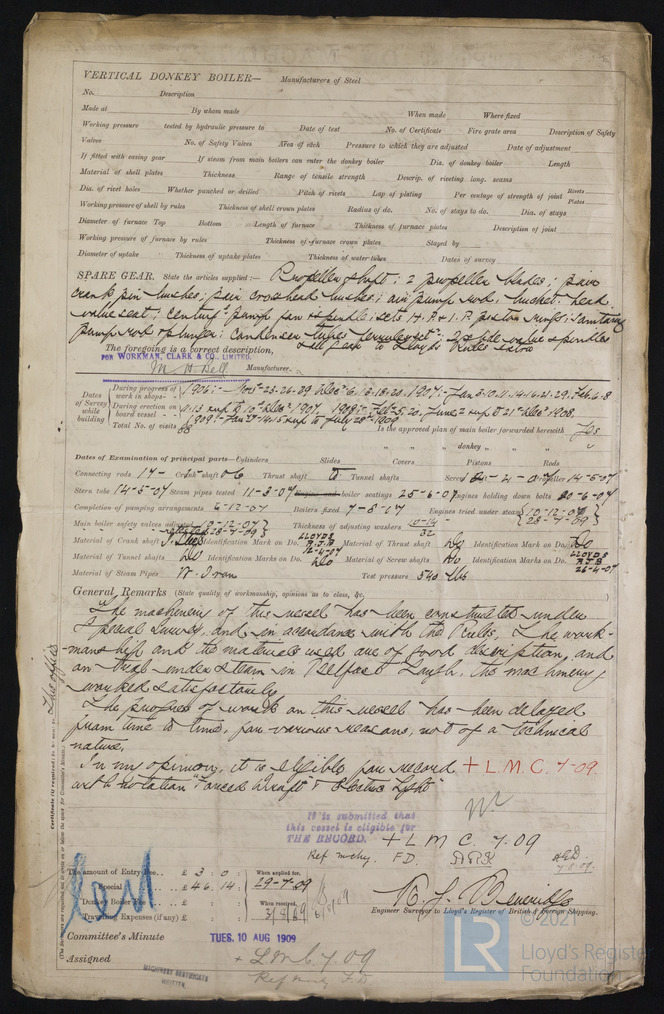 VERTICAL DONKEY BOILER— Manufacturers of Steel
No. Description
Made at By whom made When made Where fixed
Working pressure tested by hydraulic pressure to Date of test No. of Certificate Fire grate area Description of Safety
Valves No. of Safety Valves Area of each Pressure to which they are adjusted Date of adjustment
If fitted with easing gear If steam from main boilers can enter the donkey boiler Dia. of donkey boiler Length
Material of shell plates Thickness Range of tensile strength Descrip. of riveting long. seams
Dia. of rivet holes Whether punched or drilled Pitch of rivets Lap of plating Per centage of strength of joint Rivets Plates
Working pressure of shell by rules Thickness of shell crown plates Radius of do. No. of stays to do. Dia. of stays
Diameter of furnace Top Bottom Length of furnace Thickness of furnace plates Description of joint
Working pressure of furnace by rules Thickness of furnace crown plates Stayed by
Diameter of uptake Thickness of uptake plates Thickness of water tubes Dates of survey
SPARE GEAR. State the articles supplied:— Propeller shaft; 2 propeller blades; pair
crank pin bushes; pair crosshead bushes; air pump rod, bucket, head
valve seat; centrif. pump fan & spindle; sets H.P. & I.P. piston rings; sanitary
pump rod & plunger; condenser tubes ferrules set; 2 slide valve spindles
The foregoing is a correct description,
FOR WORKMAN, CLARK & CO., LIMITED.
Manufacturer.
Dates of Survey while building
During progress of work in shops- 1906:- Nov 23-26-29 Dec 6.12.18.20. 1907:- Jan 3.10.11.14.16.21.29. Feb 6.8
During erection on board vessel - 11.13 & up to 10th Dec 1907. 1908:- Feb 5.20. June 2 & up to 21st Dec 1908.
1909:- Jan 14.15 & up to July 28th 1909
Total No. of visits 88 Is the approved plan of main boiler forwarded herewith Yes
" " " donkey " "
Dates of Examination of principal parts—Cylinders Slides Covers Pistons Rods
Connecting rods Crank shaft Thrust shaft Tunnel shafts Screw Propeller 14-5-07
Stern tube 14-5-07 Steam pipes tested 11-3-07 Engine and boiler seatings 25-6-07 Engines holding down bolts 20-6-07
Completion of pumping arrangements 6-12-07 Boilers fixed 7-8-07 Engines tried under steam 10-12-07 28-7-09
Main boiler safety valves adjusted 10-12-07 28-7-09 Thickness of adjusting washers 10-14 32
Material of Crank shaft Identification Mark on Do. LLOYDS 12-4-07 Material of Thrust shaft Do Identification Mark on Do. Do
Material of Tunnel shafts Do Identification Marks on Do. Do Material of Screw shafts Do Identification Marks on Do. LLOYDS 26-4-07
Material of Steam Pipes W. Iron Test pressure 540 lbs
General Remarks (State quality of workmanship, opinions as to class, &c.
The machinery of this vessel has been constructed under
Special Survey, and in accordance with the Rules, The work-
manship and the materials used are of good description, and
on trial under steam in Belfast Lough, the machinery
worked satisfactorily
The progress of work on this vessel has been delayed
from time to time, for various reasons, not of a technical
nature,
In my opinion, it is eligible for record + L.M.C. 7-09.
with notation "Forced draft" & "Electric Light"
It is submitted that
this vessel is eligible for
THE RECORD. + L M C 7.09
Ref mchy. F.D.
7.8.09.
Certificate (if required) to be sent to This office
(The Surveyors are requested not to write on or below the space for Committee's Minute.)
The amount of Entry Fee.. £ 3 : 0 : When applied for,
Special £ 46 . 14 : 29-7-09
Donkey Boiler Fee £ : : When received,
Travelling Expenses (if any) £ : : 3/8/09 6/8/09
Engineer Surveyor to Lloyd's Register of British & Foreign Shipping.
Committee's Minute TUES. 10 AUG 1909
Assigned + L M C 7 09
Ref mchy F.D
MACHINERY CERTIFICATE
WRITTEN.
© 2021
LR
Lloyd's Register
Foundation